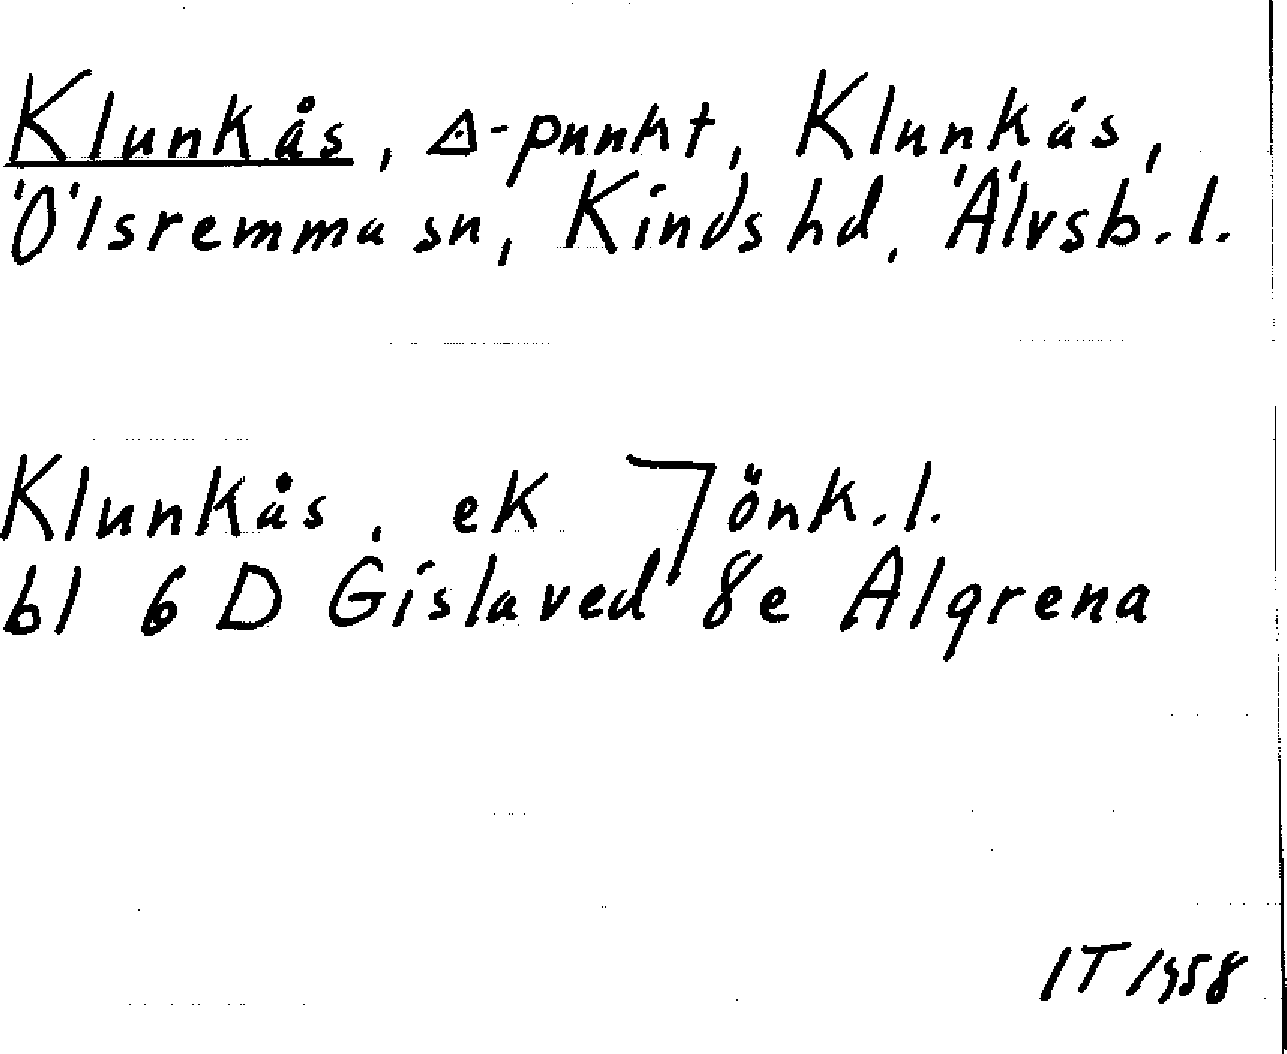 Klunkås, Δ-punkt, Klunkås,
Ölsremma sn, Kinds hd, Älvsb. l.
Klunkås, ek Jönk. l.
bl 6 D Gislaved 8e Algrena
IT 1958